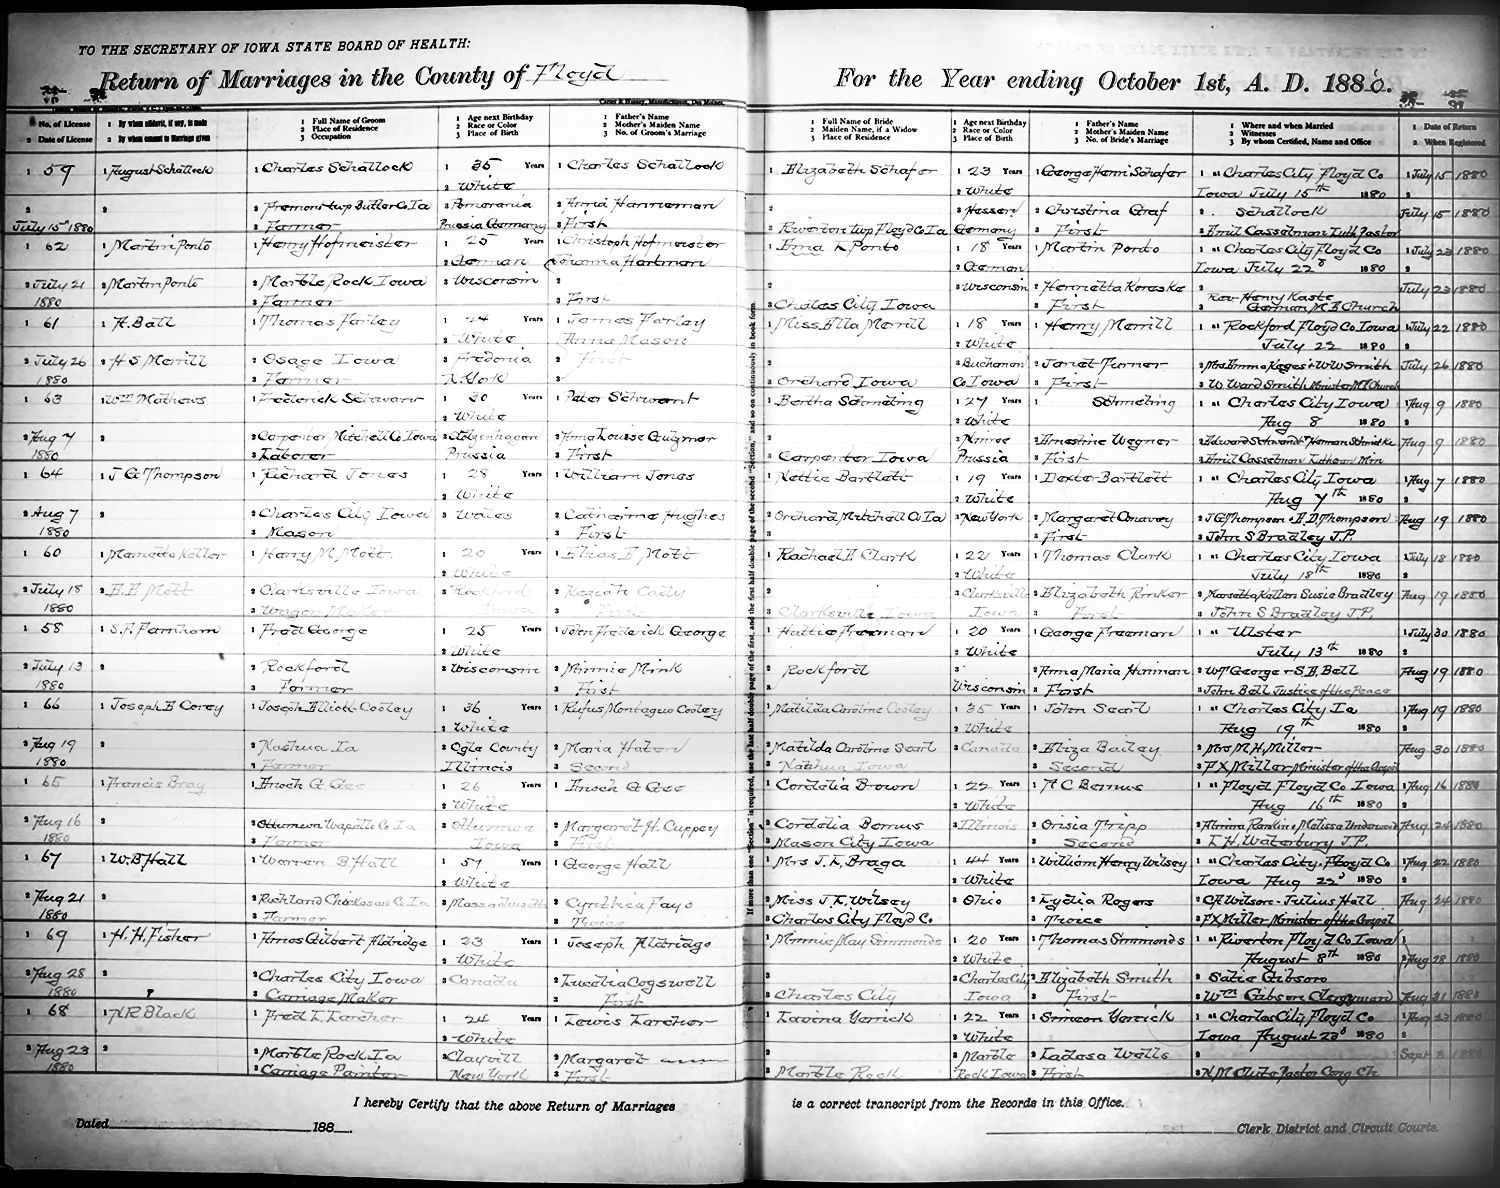 TO THE SECRETARY OF IOWA STATE BOARD OF HEALTH:
Return of Marriages in the County of Floyd
For the Year ending October 1st, A. D. 1880.
Carter & Hussey, Manufacturers, Des Moines.
1 No. of License
2 Date of License
1 By whom affidavit, if any, is made
2 By whom consent to Marriage given
1 Full Name of Groom
2 Place of Residence
3 Occupation
1 Age next Birthday
2 Race or Color
3 Place of Birth
1 Father's Name
2 Mother's Maiden Name
3 No. of Groom's Marriage
1 Full Name of Bride
2 Maiden Name, if a Widow
3 Place of Residence
1 Age next Birthday
2 Race or Color
3 Place of Birth
1 Father's Name
2 Mother's Maiden Name
3 No. of Bride's Marriage
1 Where and when Married
2 Witnesses
3 By whom Certified, Name and Office
1 Date of Return
2 When Registered
1 59 1 August Schallock 1 Charles Schallock 1 35 Years 1 Charles Schallock 1 Elizabeth Schafer 1 23 Years 1 George Henri Schafer 1 at Charles City Floyd Co 1 July 15 1880
2 White 2 White Iowa July 15th 1880
2 2 2 Fremont twp Butler Co Ia 3 Pomerania 2 Anna Hanneman 2 3 Hessen 2 Christina Graf 2 Schallock July 15 1880
July 15th 1880 3 Farmer Prussia Germany 3 First 3 Riverton twp Floyd Co Ia Germany 3 First 3 Emil Casselman Luth Pastor
1 62 1 Martin Ponto 1 Henry Hofmeister 1 25 Years 1 Christoph Hofmeister 1 Emma L Ponto 1 18 Years 1 Martin Ponto 1 at Charles City Floyd Co 1 July 23 1880
2 German Johanna Hartman 2 German Iowa July 22d 1880 2
2 July 21 2 Martin Ponto 2 Marble Rock Iowa 3 Wisconsin 2 2 3 Wisconsin 2 Henrietta Koreske 2 July 23 1880
1880 3 Farmer 3 First 3 Charles City Iowa 3 First Rev Henry Kaste
3 German M E Church
1 61 1 A. Ball 1 Thomas Farley 1 24 Years 1 James Farley 1 Miss Ella Merrill 1 18 Years 1 Henry Merrill 1 at Rockford Floyd Co Iowa July 22 1880
2 White Anna Mason 2 White July 22 1880
2 July 26 2 H S Merrill 2 Osage Iowa 3 Fredonia 2 First 2 3 Buchanan 2 Janet Turner 2 Mrs Emma Kages & W W Smith July 26 1880
1880 3 Farmer N. York 3 3 Orchard Iowa Co Iowa 3 First 3 W Ward Smith Minister M E Church
1 63 1 Wm Mathews 1 Frederick Schwarz 1 30 Years 1 Peter Schwant 1 Bertha Schmeling 1 27 Years 1 Schmeling 1 at Charles City Iowa 1 Aug 9 1880
2 White 2 White Aug 8 1880 2
2 Aug 7 2 2 Carpenter Mitchell Co Iowa 3 Stolzenhagan 2 Anna Louise Gutzmer 2 3 2 Ernestine Wegner 2 Aug 9 1880
1880 3 Laborer Prussia 3 First 3 Carpenter Iowa Prussia 3 First 3 Emil Casselman Lutheran Min
1 64 1 J G Thompson 1 Richard Jones 1 28 Years 1 William Jones 1 Nettie Bartlett 1 19 Years 1 Dexter Bartlett 1 at Charles City Iowa 1 Aug 7 1880
2 White 2 White Aug 7th 1880
2 Aug 7 2 2 Charles City Iowa 3 Wales 2 Catharine Hughes 2 Orchard Mitchell Co Ia 3 New York 2 Margaret Conavey 2 J G Thompson & E. D. Thompson Aug 19 1880
1880 3 Mason 3 First 3 First 3 John S Bradley J.P.
1 60 1 Marietta Keller 1 Harry M Mott 1 20 Years 1 Elias E Mott 1 Rachael E Clark 1 22 Years 1 Thomas Clark 1 at Charles City Iowa 1 July 18 1880
2 White 2 White July 18th 1880 2
2 July 18 2 E. E Mott 2 Clarksville Iowa 3 Rockford 2 Keziah Cady 2 3 Clarksville 2 Elizabeth Rinker 2 Marietta Keller Susie Bradley Aug 19 1880
1880 3 Wagon Maker Iowa 3 First 3 Clarksville Iowa Iowa 3 First 3 John S Bradley J.P.
1 58 1 S. F. Farnham 1 Fred George 1 25 Years 1 John Frederick George 1 Hattie Freeman 1 20 Years 1 George Freeman 1 at Ulster 1 July 30 1880
2 White 2 White July 13th 1880 2
2 July 13 2 2 Rockford 3 Wisconsin 2 Minnie Mink 2 Rockford 3 2 Anna Maria Hinman 2 W F George & S. E. Bell Aug 19 1880
1880 3 Farmer 3 First 3 Wisconsin 3 First 3 John Bell Justice of the Peace
1 66 1 Joseph E Corey 1 Joseph Elliott Cooley 1 36 Years 1 Rufus Montague Cooley 1 Matilda Caroline Cooley 1 35 Years 1 John Searl 1 at Charles City Ia 1 Aug 19 1880
2 White 2 White Aug 19th 1880 2
2 Aug 19 2 2 Nashua Ia 3 Ogle County 2 Maria Haten 2 Matilda Caroline Searl 3 Canada 2 Eliza Bailey 2 Mrs M. H. Miller Aug 30 1880
1880 3 Farmer Illinois 3 Second 3 Nashua Iowa 3 Second 3 F X Miller Minister of the Gospel
1 65 1 Francis Bray 1 Enoch G Gee 1 26 Years 1 Enoch G Gee 1 Cordelia Brown 1 22 Years 1 A C Bemus 1 at Floyd Floyd Co Iowa 1 Aug 16 1880
2 White 2 White Aug 16th 1880 2
2 Aug 16 2 2 Ottumwa Wapello Co Ia 3 Ottumwa 2 Margaret H. Cuppey 2 Cordelia Bemus 3 Illinois 2 Orisia Tripp 2 Almira Rankin & Malissa Underwood Aug 24 1880
1880 3 Farmer Iowa 3 First 3 Mason City Iowa 3 Second 3 L H. Waterbury J.P.
1 67 1 W. B Hall 1 Warren B Hall 1 57 Years 1 George Hall 1 Mrs J. L. Braga 1 44 Years 1 William Henry Wilsey 1 at Charles City. Floyd Co 1 Aug 22 1880
2 White 2 White Iowa Aug 22d 1880 2
2 Aug 21 2 2 Richland Chickasaw Co Ia 3 Massachusetts 2 Cynthea Fays 2 Miss J. L. Wilsey 3 Ohio 2 Lydia Rogers 2 C A Wilson - Julius Hall Aug 24 1880
1880 3 Farmer 3 Twice 3 Charles City Floyd Co. 3 Twice 3 F X Miller Minister of the Gospel
1 69 1 H. H. Fisher 1 Amos Gilbert Aldridge 1 23 Years 1 Joseph Aldriage 1 Minnie May Simmonds 1 20 Years 1 Thomas Simmonds 1 at Riverton Floyd Co Iowa 1
2 White 2 White August 8th 1880 2 Aug 28 1880
2 Aug 28 2 2 Charles City Iowa 3 Canada 2 Lucelia Cogswell 2 3 Charles City 2 Elizabeth Smith 2 Satie Gibson
1880 3 Carriage Maker 3 First 3 Charles City Iowa 3 First 3 Wm Gibson Clergyman Aug 31 1880
1 68 1 N. R. Black 1 Fred L Larcher 1 24 Years 1 Lewis Larcher 1 Lavina Yerrick 1 22 Years 1 Simeon Yerrick 1 at Charles City Floyd Co 1 Aug 23 1880
2 White 2 White Iowa August 23d 1880
2 Aug 23 2 2 Marble Rock Ia 3 Clayvill 2 Margaret 2 3 Marble 2 Ladesa Wells 2 Sept 3 1880
1880 3 Carriage Painter New York 3 First 3 Marble Rock Rock Iowa 3 First 3 N. M Clute Pastor Cong Ch
If more than one "Section" is required, use the last half double page of the first, and the first half double page of the second "Section," and so on continuously in book form.
I hereby Certify that the above Return of Marriages is a correct transcript from the Records in this Office.
Dated 188
Clerk District and Circuit Courts.